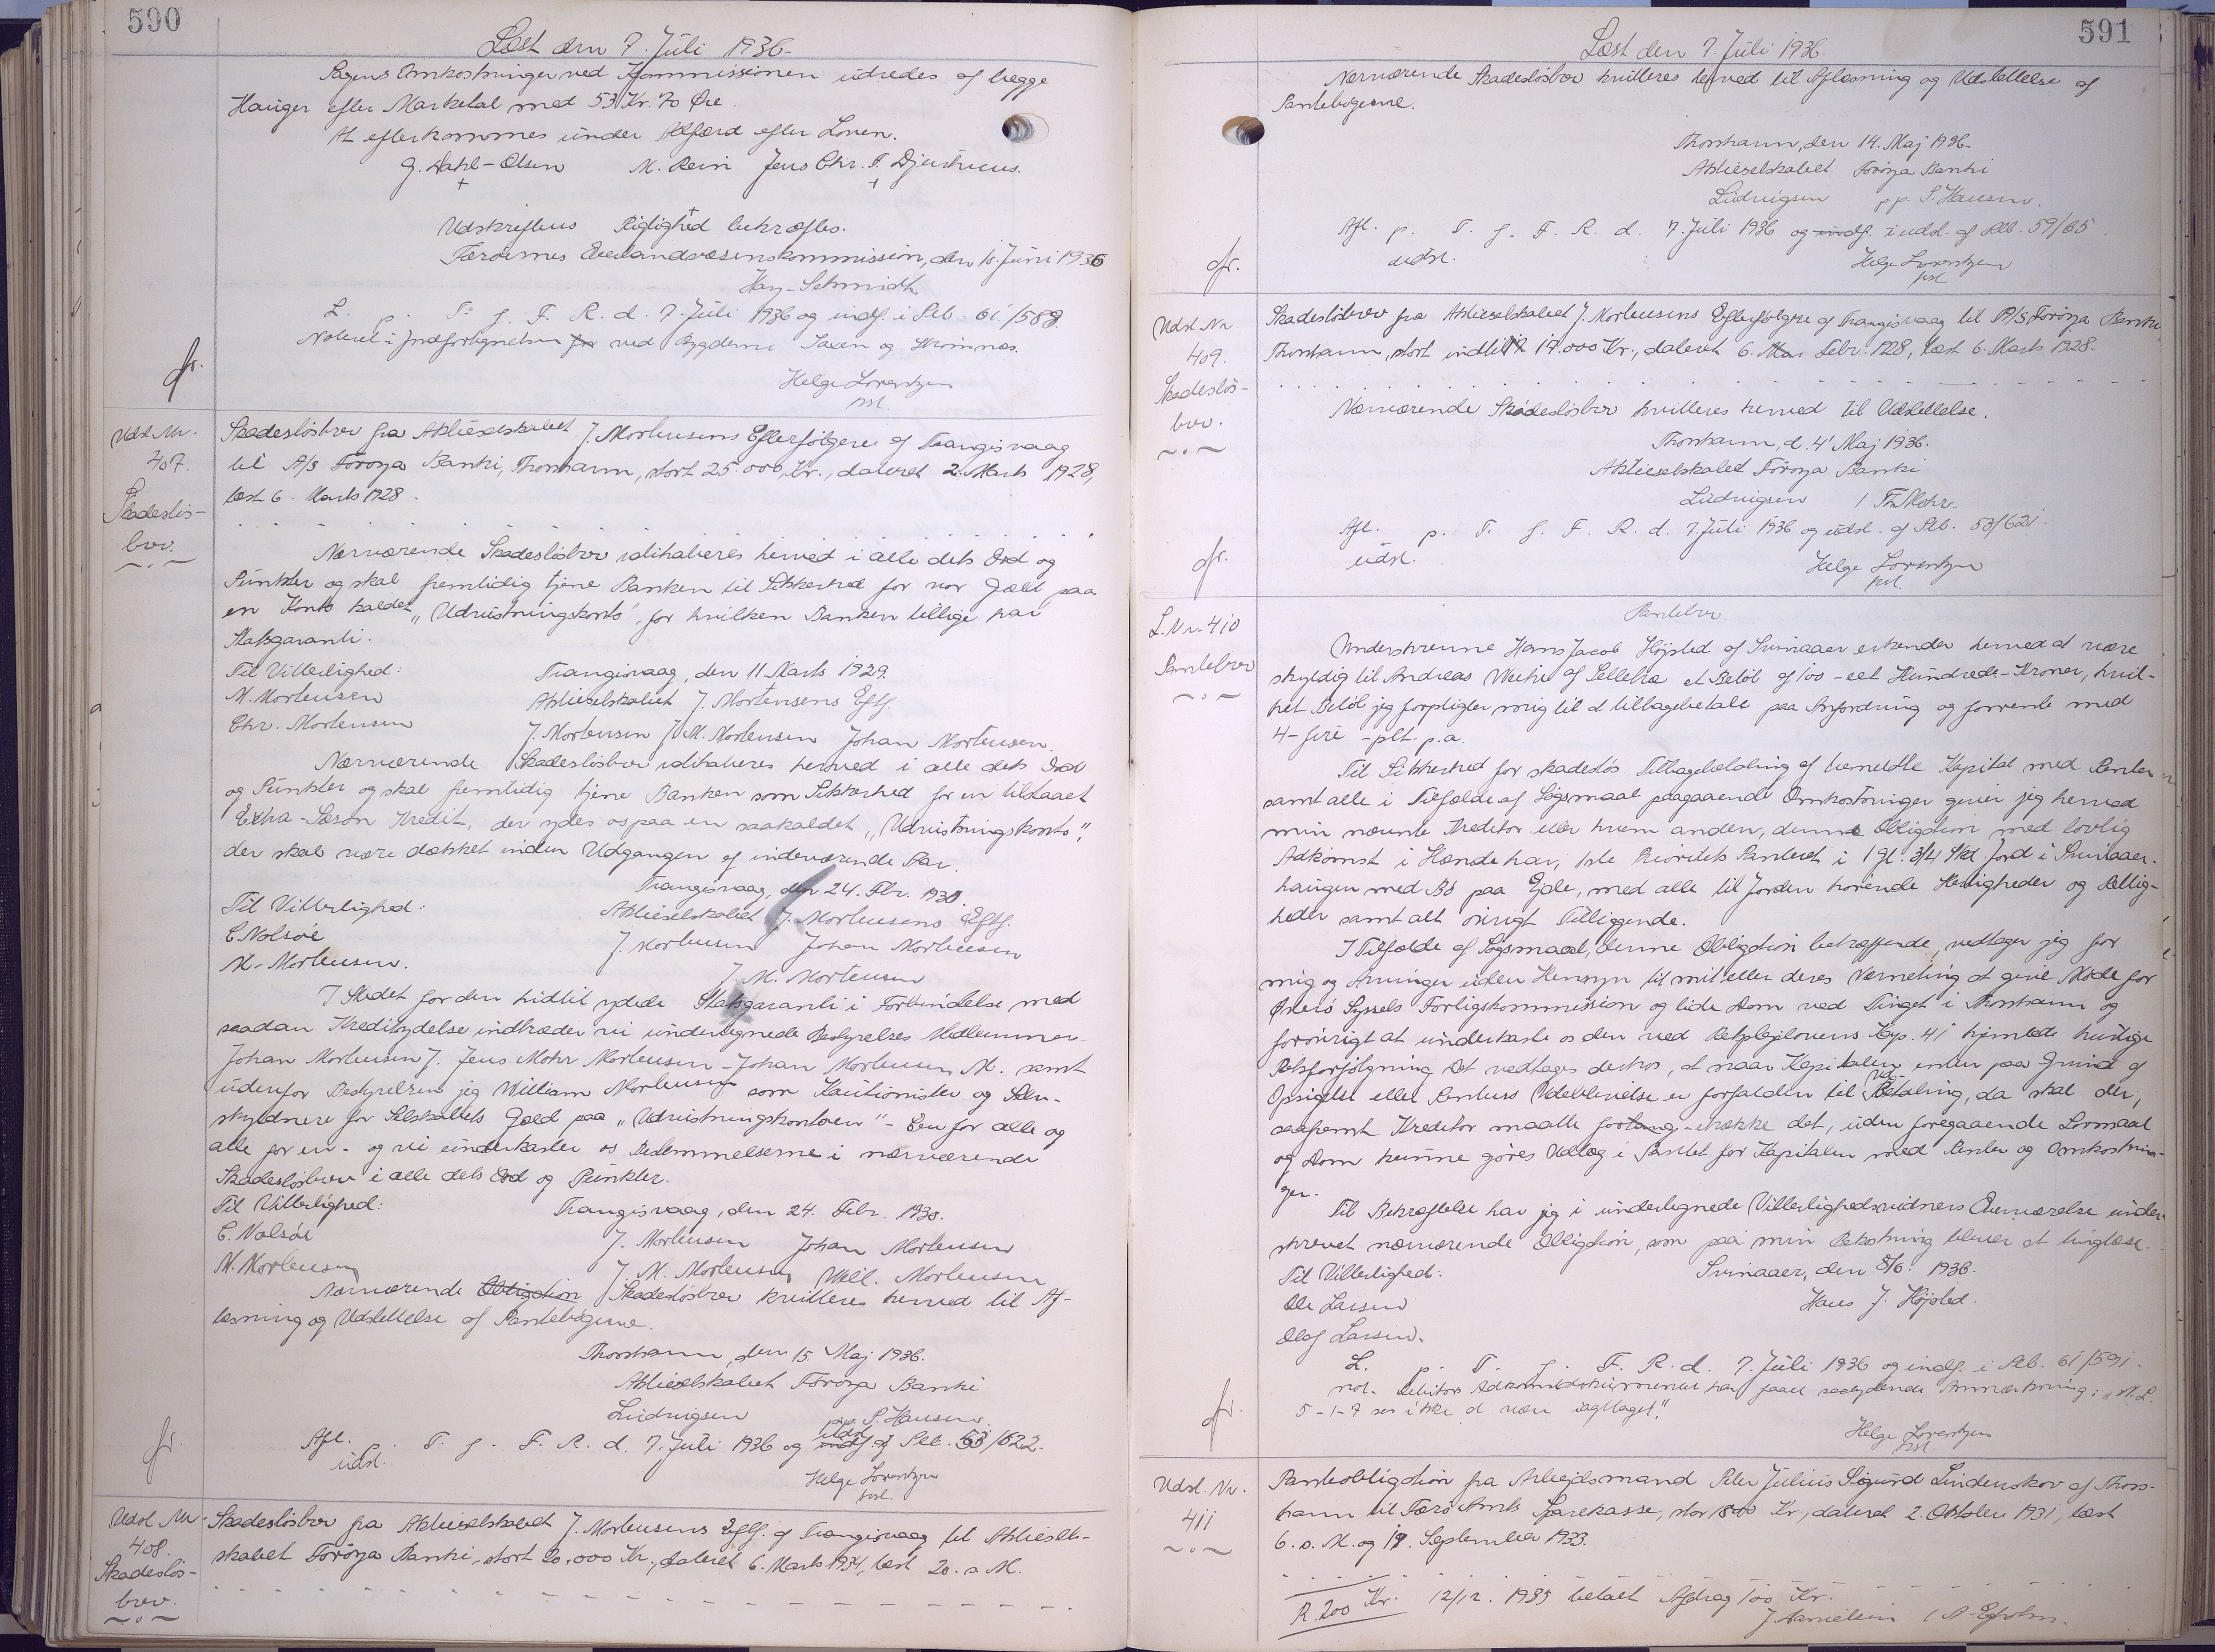 590
Læst den 7. Juli 1936.
Sagens Omkostninger ved Kommissionen udredes af begge
Hauger efter Marketal med 53 Kr. 70 Øre.
At efterkommes under Adfærd efter Loven.
G. Dahl-Olsen M. Rein Jens Chr. S. Djurhuus.
Udskriftens Rigtighed bekræftes.
Færøernes Overlandvæsenskommission, den 10. Juni 1936
Hay-Schmidt
L. p. T. f. F. R. d. 7. Juli 1936 og indf. i Pcb. 61/588
Noteret i Indførtegnelsen for ved Bygderne Saxen og Strømnæs.
Helge Lorentzen
fr.
Udsl. Nr.
407.
Skadesløs-
brev.
Skadesløsbrev fra Aktieselskabet J. Mortensens Efterfølgere af Trangisvaag
til A/S Føroya Banki, Thorshavn, stort 25.000 Kr., dateret 2. Marts 1928,
læst 6. Marts 1928.
Nærværende Skadesløsbrev vilitaberes herved i alle dets Ord og
Punkter og skal fremtidig tjene Banken til Sikkerhed for vor Gæld paa
en Konto kaldet "Udrustningskonto", for hvilken Banken tillige har
Statsgaranti.
Til Vitterlighed: Trangisvaag, den 11 Marts 1929.
M. Mortensen Aktieselskabet J. Mortensens Eftf.
Chr. Mortensen J. Mortensen J. M. Mortensen Johan Mortensen.
Nærværende Skadesløsbrev vilitaberes herved i alle dets Ord
og Punkter og skal fremtidig tjene Banken som Sikkerhed for en tilstaaet
Extra-Sæson Kredit, der ydes os paa en saakaldet "Udrustningskonto",
der skal være dækket inden Udgangen af indeværende Aar.
Trangisvaag, den 24. Febr. 1930.
Til Vitterlighed: Aktieselskabet J. Mortensens Eftf.
C. Nolsøe J. Mortensen Johan Mortensen
M. Mortensen. J. M. Mortensen
I Stedet for den hidtil ydede Statsgaranti i Forbindelse med
saadan Kreditydelse indtræder vi undertegnede Bestyrelses Medlemmer
Johan Mortensen J. Jens Mohr Mortensen - Johan Mortensen M. samt
udenfor Bestyrelsen jeg William Mortensen som Kautionister og Selv-
skyldnere for Selskabets Gæld paa "Udrustningskontoen" - Een for alle og
alle for en - og vi underkaster os Bestemmelserne i nærværende
Skadesløsbrev i alle dets Ord og Punkter.
Til Vitterlighed: Trangisvaag, den 24. Febr. 1930.
C. Nolsøe J. Mortensen Johan Mortensen
M. Mortensen J. M. Mortensen Will. Mortensen
Nærværende Obligation Skadesløsbrev kvitteres herved til Af-
læsning og Udslettelse af Pantebøgerne.
Thorshavn, den 15. Maj 1936.
Aktieselskabet Føroya Banki
Ludvigsen pp. P. Hansen.
Afl. p. T. f. F. R. d. 7. Juli 1936 og indf. udsl. af Pcb. 53/622.
udsl.
Helge Lorentzen
fr.
Udsl. Nr.
408.
Skadesløs-
brev.
Skadesløsbrev fra Aktieselskabet J. Mortensens Eftf. af Trangisvaag til Aktiesel-
skabet Føroya Banki, stort 20.000 Kr., dateret 6. Marts 1934, læst 20. s. M.
591
Læst den 7. Juli 1936.
Nærværende Skadesløsbrev kvitteres herved til Aflæsning og Udslettelse af
Pantebøgerne.
Thorshavn, den 14. Maj 1936.
Aktieselskabet Føroya Banki
Ludvigsen pp. P. Hansen.
Afl. p. T. f. F. R. d. 7. Juli 1936 og indf. i udsl. af Pcb. 59/65.
udsl.
Helge Lorentzen
fr.
Udsl. Nr.
409.
Skadesløs-
brev.
Skadesløsbrev fra Aktieselskabet J. Mortensens Efterfølgere af Trangisvaag til A/S Føroya Banki
Thorshavn, stort indtil 17.000 Kr., dateret 6. Mar Febr. 1928, læst 6. Marts 1928.
Nærværende Skadesløsbrev kvitteres herved til Udslettelse.
Thorshavn, d. 4' Maj 1936.
Aktieselskabet Føroya Banki
Ludvigsen / Th. Mohr.
Afl. p. T. f. F. R. d. 7. Juli 1936 og udsl. af Pcb. 53/621.
udsl.
Helge Lorentzen
fr.
L. Nr. 410
Pantebrev
Pantebrev.
Underskrevne Hans Jacob Højsted af Svinaaer erkender herved at være
skyldig til Andreas Weihe af Selletræ et Beløb af 100 - eet Hundrede - Kroner, hvil-
ket Beløb jeg forpligter mig til at tilbagebetale paa Anfordring og forrente med
4 - fire - pCt. p.a.
Til Sikkerhed for skadesløs Tilbagebetaling af bemeldte Kapital med Renter
samt alle i Tilfælde af Søgsmaal paagaaende Omkostninger giver jeg herved
min nævnte Kreditor eller hvem anden, denne Obligation med lovlig
Adkomst i Hænde har, 1ste Prioritets Panteret i 1 Gl. 3/4 Skd. Jord i Svinaaer-
haugen med Bø paa Ejde, med alle til Jorden hørende Herligheder og Rettig-
heder samt alt øvrigt Tilliggende.
I Tilfælde af Søgsmaal, denne Obligation betræffende, vedtager jeg for
mig og Arvinger uden Hensyn til mit eller deres Værneting at give Møde for
Østerø Syssels Forligskommission og lide Dom ved Tinget i Thorshavn og
forøvrigt at underkaste os den ved Retsplejelovens Kap. 41 hjemlede hurtige
Retsforfølgning. Det vedtages derhos, at naar Kapitalen enten paa Grund af
Opsigelse eller Rentens Udeblivelse er forfalden til Ud-Betaling, da skal der,
saafremt Kreditor maatte forlang-trække det, uden foregaaende Lovmaal
og Dom kunne gøres Udlæg i Pantet for Kapitalen med Renter og Omkostnin-
ger.
Til Bekræftelse har jeg i undertegnede Vitterlighedsvidners Overværelse under-
skrevet nærværende Obligation, som paa min Bekostning bliver at tinglæse.
Til Vitterlighed: Svinaaer, den 8/6. 1936.
Ole Larsen Hans J. Højsted.
Olaf Larsen.
L. p. T. f. F. R. d. 7. Juli 1936 og indf. i Pcb. 61/591.
not. Debitors Adkomstdokument har faaet saalydende Anmærkning: "N. L.
5-1-7 ses ikke at være iagttaget".
Helge Lorentzen
fr.
Udsl. Nr.
411
Panteobligation fra Arbejdsmand Peter Julius Sigurd Lindenskov af Thors-
havn til Færø Amts Sparekasse, stor 1800 Kr., dateret 2. Oktober 1931, læst
6. s. M. og 19. September 1933.
R. 200 Kr. 12/12. 1935 betalt Afdrag 100 Kr.
J. Danielsen